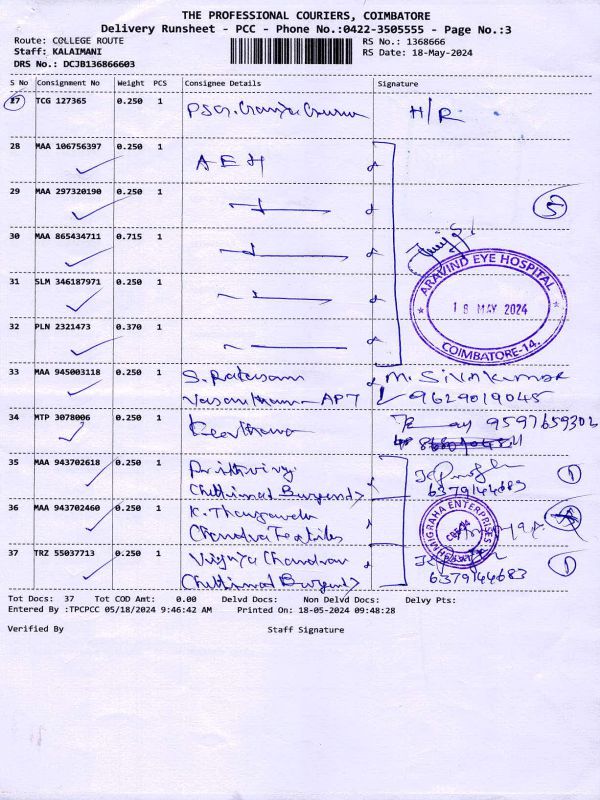 THE PROFESSIONAL COURIERS, COIMBATORE
Delivery Runsheet - PCC - Phone No.:0422-3505555 - Page No.:3
Route: COLLEGE ROUTE RS No.: 1368666
Staff: KALAIMANI RS Date: 18-May-2024
DRS No.: DCJB136866603
S No Consignment No Weight PCS Consignee Details Signature
27 TCG 127365 0.250 1 H/R
28 MAA 106756397 0.250 1 AEH
29 MAA 297320190 0.250 1
5
30 MAA 865434711 0.715 1
ARAVIND EYE HOSPITAL
18 MAY 2024
COIMBATORE-14.
31 SLM 346187971 0.250 1
32 PLN 2321473 0.370 1
33 MAA 945003118 0.250 1 S. M. SivaKumar
APT 9629019045
34 MTP 3078006 0.250 1 9597659302
35 MAA 943702618 0.250 1 1
6379144683
36 MAA 943702460 0.250 1 K.
ENTERPRISES
37 TRZ 55037713 0.250 1 1
6379144683
Tot Docs: 37 Tot COD Amt: 0.00 Delvd Docs: Non Delvd Docs: Delvy Pts:
Entered By :TPCPCC 05/18/2024 9:46:42 AM Printed On: 18-05-2024 09:48:28
Verified By Staff Signature